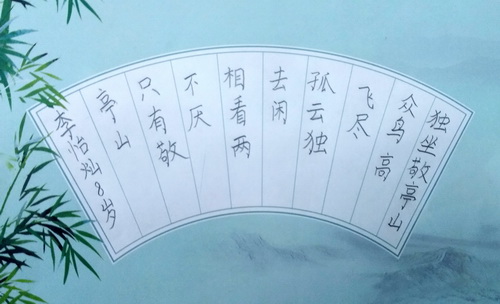 独坐敬亭山
众鸟高
飞尽
孤云独
去闲
相看两
不厌
只有敬
亭山
李怡灿8岁